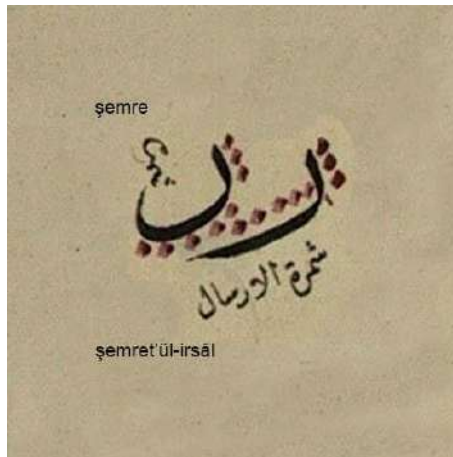 şemre
شمرة الارسال
şemret'ül-irsâl